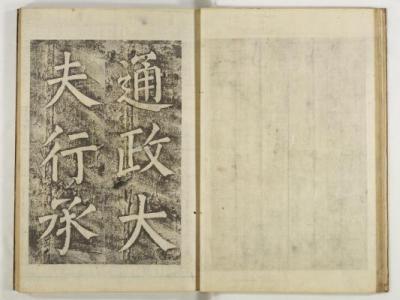 通政大
夫行承